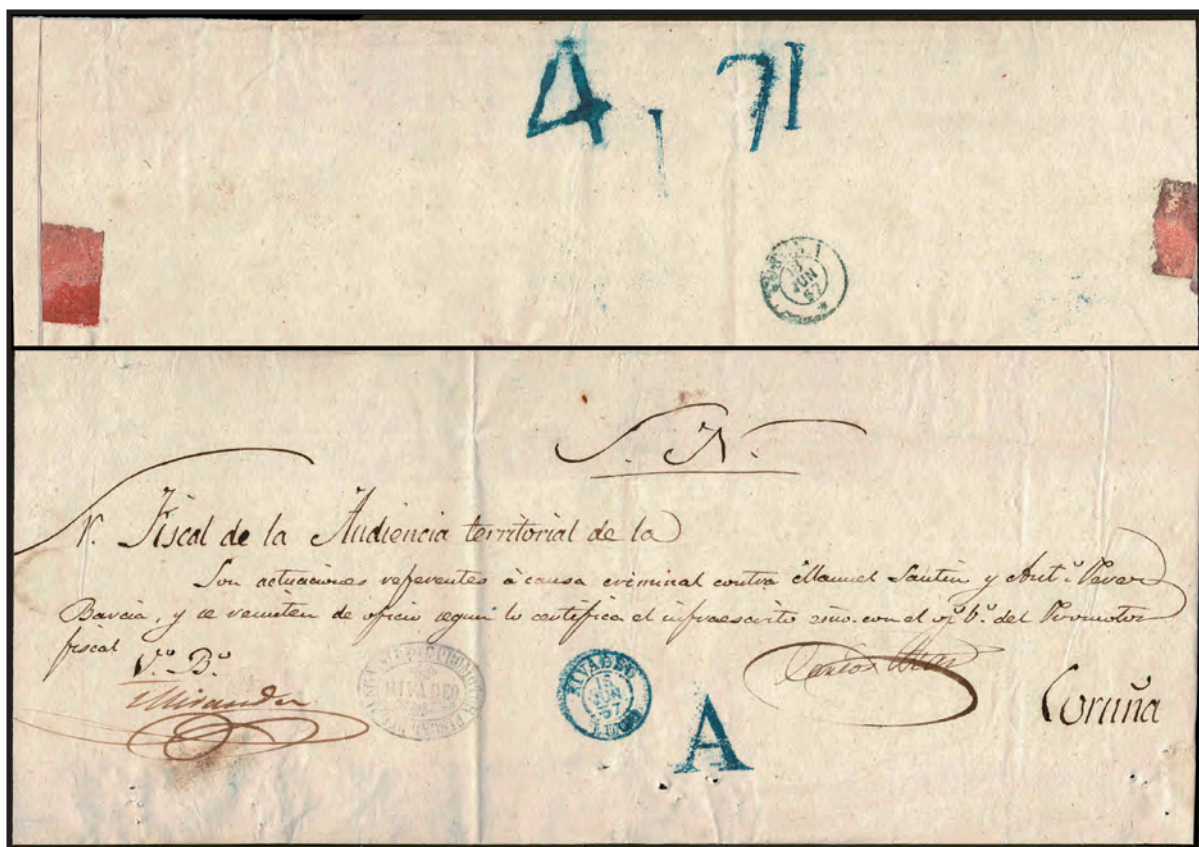 4, 71
JUN
57
S. N.
Fiscal de la Audiencia territorial de la
Son actuaciones referentes á causa criminal contra Manuel Santin y Ant.º
Barcia, y se remiten de oficio segun lo certifica el infraescrito con el del Promotor
fiscal
V.º B.º
RIVADEO
RIVADEO
15
JUN
57
LUGO
A
Coruña